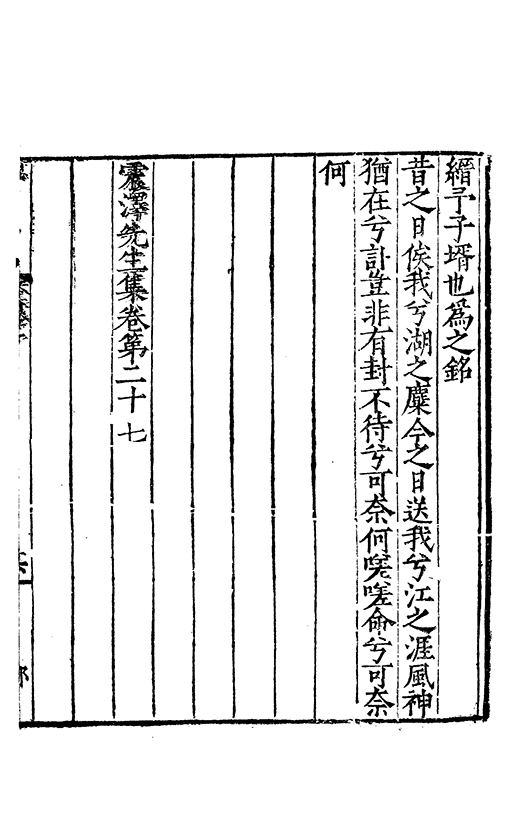 縉予子壻也為之銘
昔之日俟我兮湖之麋今之日送我兮江之涯風神
猶在兮計豈非有封不待兮可奈何嗟嗟命兮可奈
何
震澤先生集卷第二十七